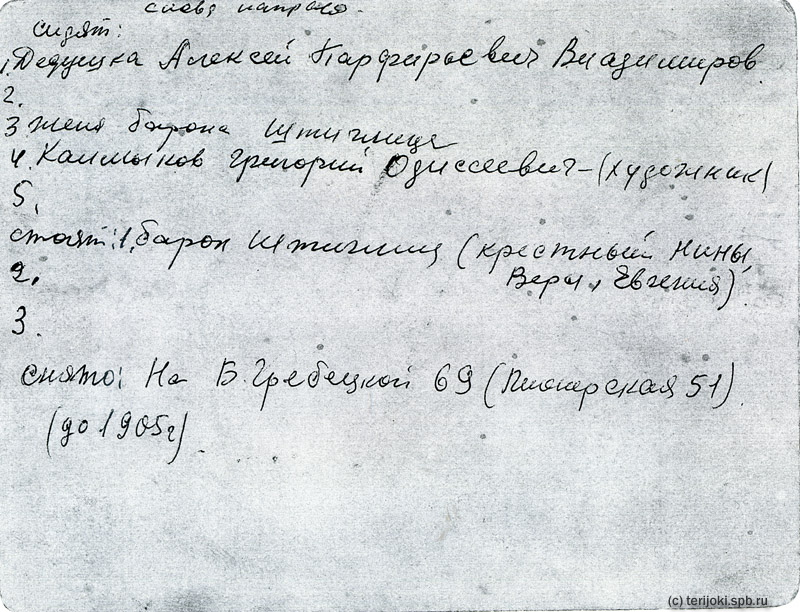 слева направо.
сидят:
1. Дедушка Алексей Парфирьевич Владимиров
2.
3 жена барона Штиглица
4. Калмыков Григорий Одиссеевич - (художник)
5.
стоят: 1. барон Штиглиц (крестный Нины,
2. Веры, Евгения)
3.
снято: На Б. Гребецкой 69 (Пионерская 51)
(до 1905г).
(c) terijoki.spb.ru